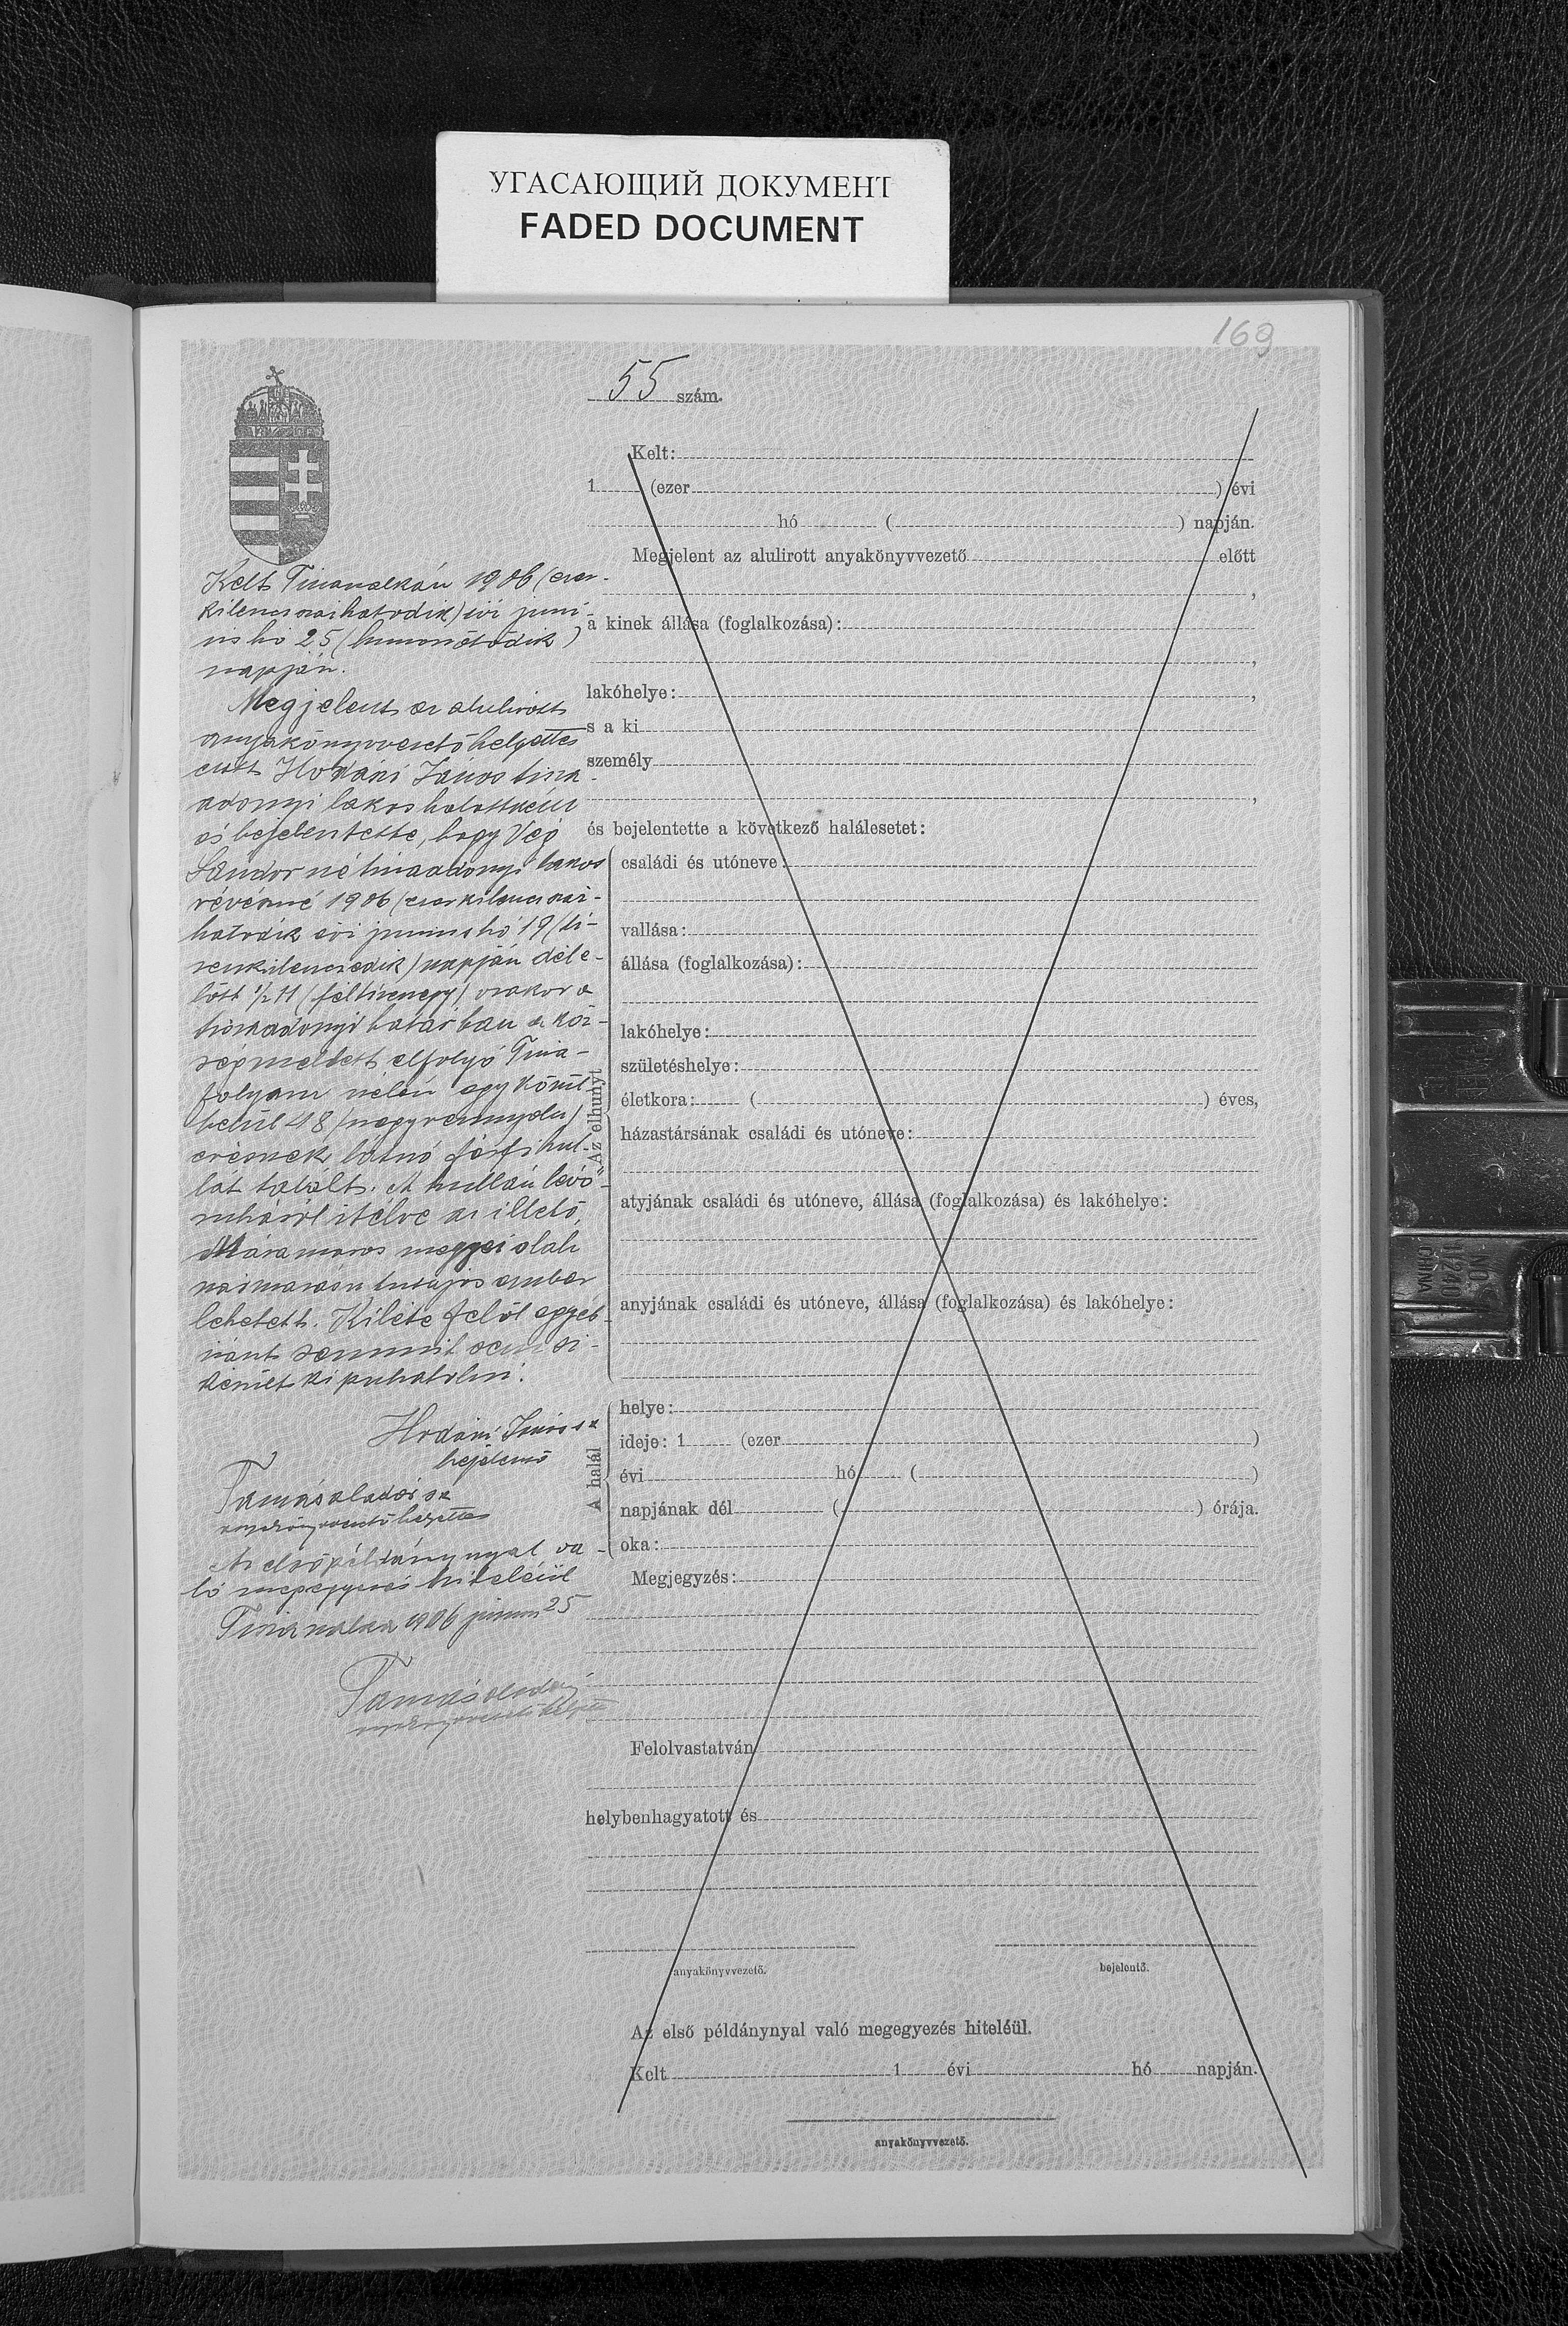 УГАСАЮЩИЙ ДОКУМЕНТ
FADED DOCUMENT
169
55 szám.
Kelt:
1 (ezer ) évi
hó ( ) napján.
Megjelent az alulirott anyakönyvvezető előtt
,
a kinek állása (foglalkozása):
,
lakóhelye: ,
s a ki
személy
,
és bejelentette a következő halálesetet:
Az elhunyt
családi és utóneve:
vallása:
állása (foglalkozása):
lakóhelye:
születéshelye:
életkora: ( ) éves,
házastársának családi és utóneve:
atyjának családi és utóneve, állása (foglalkozása) és lakóhelye:
anyjának családi és utóneve, állása (foglalkozása) és lakóhelye:
A halál
helye:
ideje: 1 (ezer )
évi hó ( )
napjának dél ( ) órája.
oka:
Megjegyzés:
Felolvastatván
helybenhagyatott és
anyakönyvvezető.
bejelentő.
Az első példánynyal való megegyezés hiteléül.
Kelt 1 évi hó napján.
anyakönyvvezető.
Kelt 1906 (ezer-
évi juni-
us hó 25 (huszonötödik)
napján.
Megjelent az alulirott
anyakönyvvezető helyettes
előtt János tisza-
adonyi lakos halottkém
és bejelentette, hogy Vég
Sándor né tiszaadonyi lakos
révészné 1906 (ezerkilencszáz-
hatodik évi junius hó 19 (ti-
zenkilencedik) napján déle-
lőtt 1/2 11 (féltizenegy) órakor a
tiszaadonyi határban a köz-
ség mellett elfolyó Tisza-
folyam szélén egy körül-
belül 48 (negyvennyolcz)
évesnek látszó férfi hul-
lát talált. A hullán levő
ruháról itélve az illető
Máramaros megyei oláh
származásu tutajos ember
lehetett. Kiléte felől egyéb-
iránt semmit sem si-
került kipuhatolni.
János sk
bejelentő
Tamás Aladár sk
anyakönyvvezető helyettes
Az első példánynyal va-
ló megegyezés hiteléül
1906 junius 25
Tamás Aladár
anyakönyvvezető helyettes